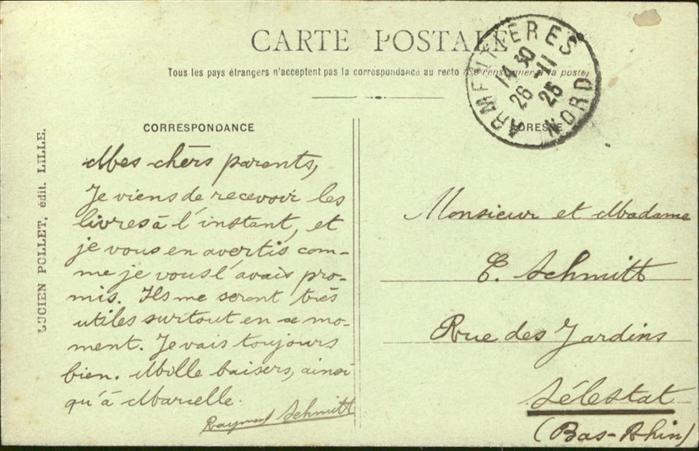 CARTE POSTALE
Tous les pays étrangers n'acceptent pas la correspondance au recto (se renseigner à la poste)
ARMENTIÈRES
14 30
26 - 11
25
NORD
CORRESPONDANCE
ADRESSE
LUCIEN POLLET, édit. LILLE.
Mes chers parents,
Je viens de recevoir les
livres à l'instant, et
je vous en avertis com-
me je vous l'avais pro-
mis. Ils me seront très
utiles surtout en se mo-
ment. Je vais toujours
bien. Mille baisers, ainsi
qu'à Marcelle.
Raymond Schmitt
Monsieur et Madame
E. Schmitt
Rue des Jardins
Sélestat
(Bas-Rhin)